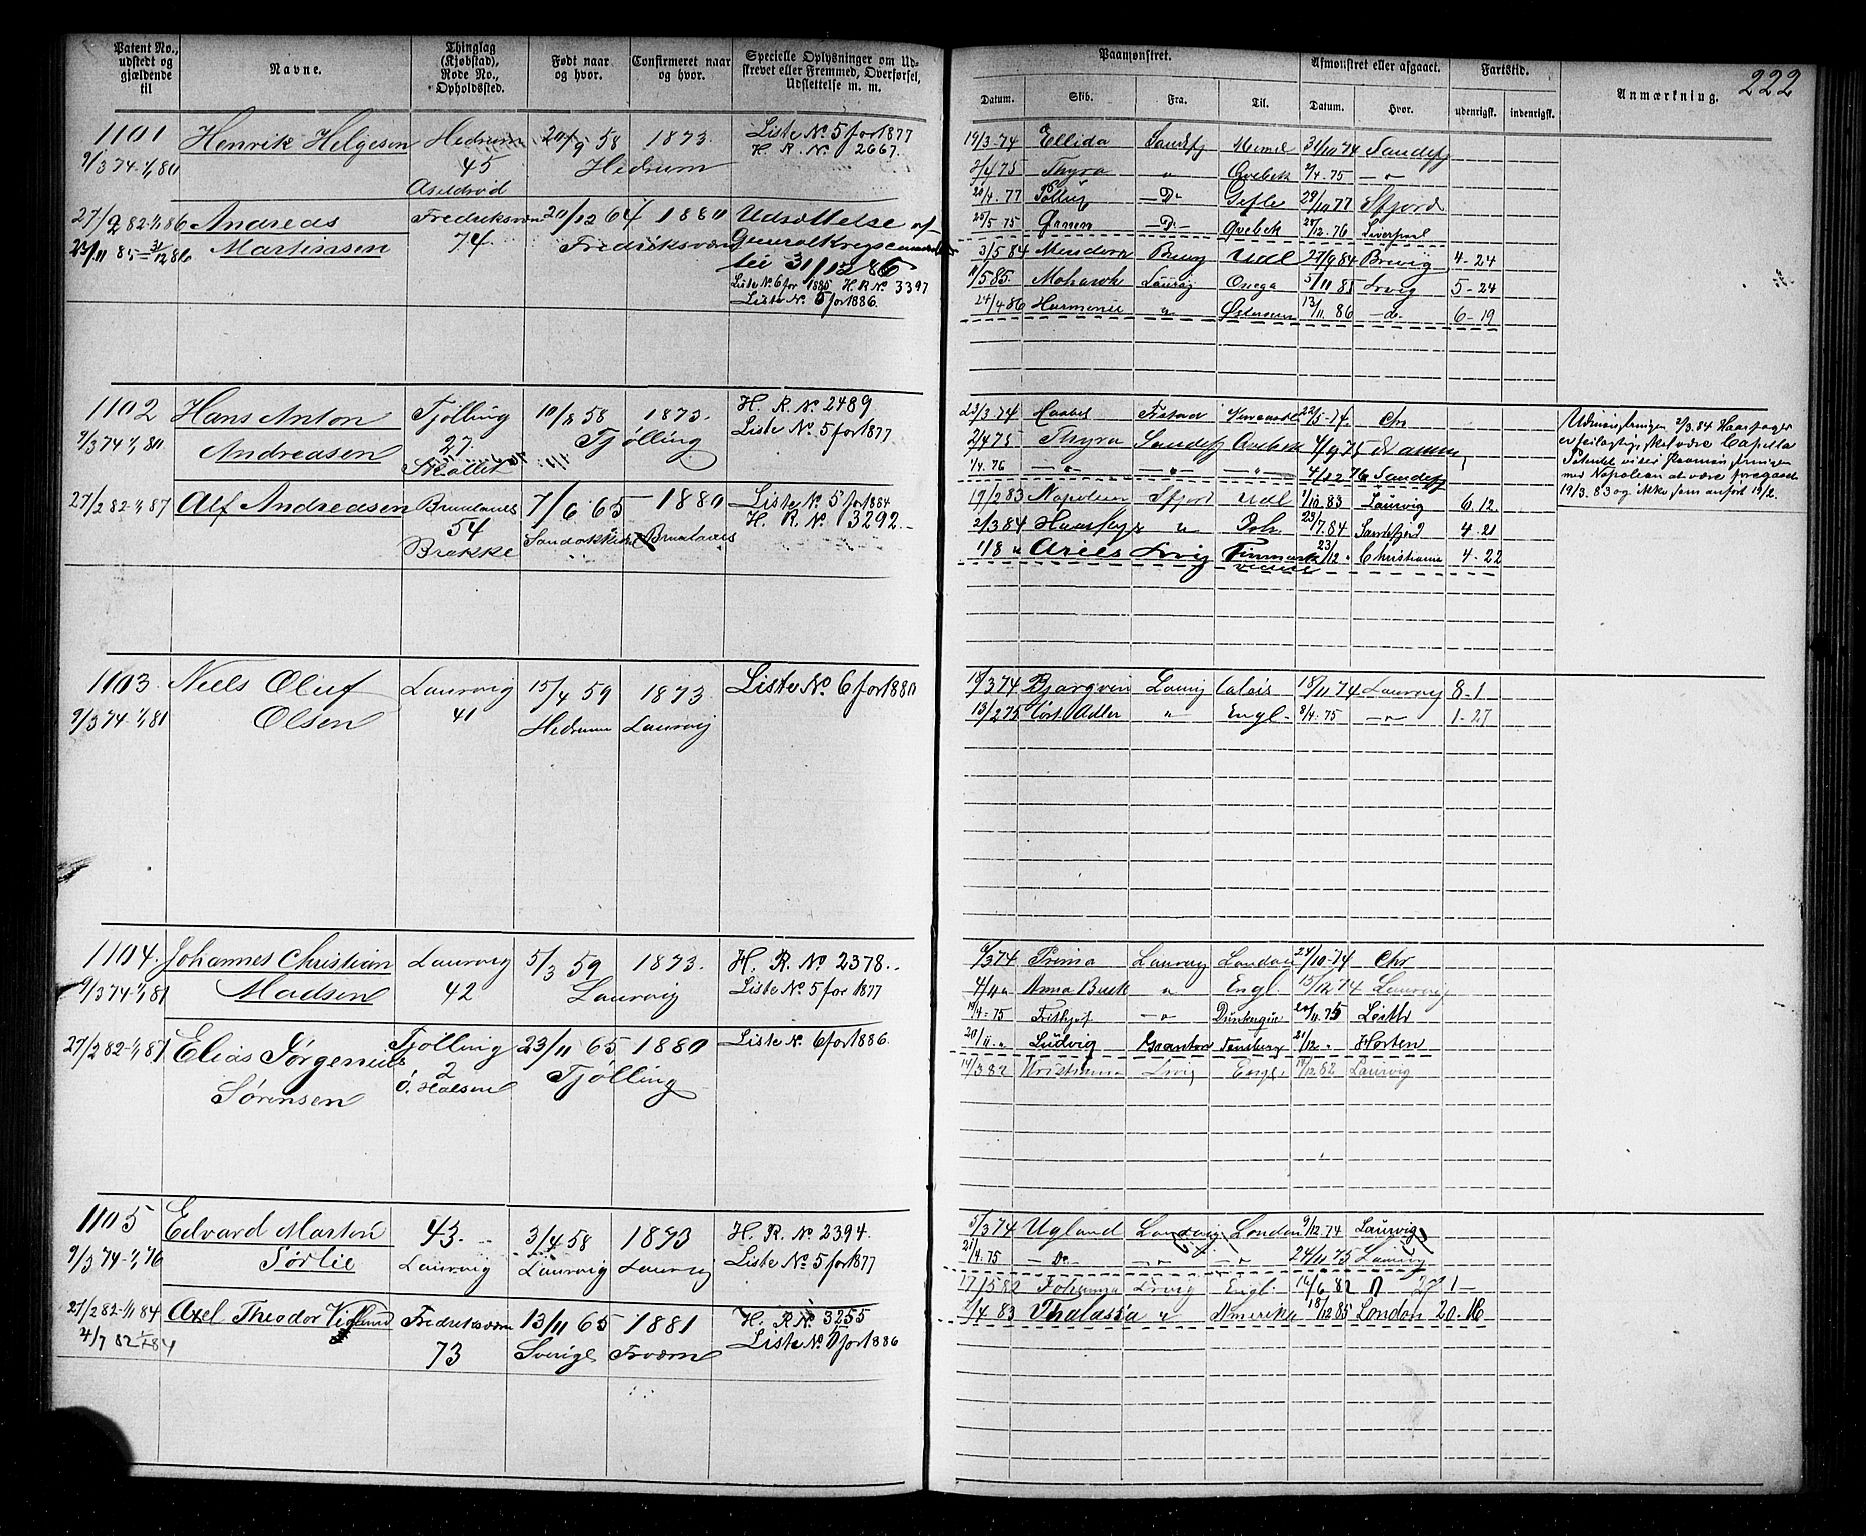 222
Patent No., udstedt og gjældende til
Navne.
Thinglag (Kjøbstad), Rode No., Opholdssted.
Født naar og hvor.
Confirmeret naar og hvor.
Specielle Oplysninger om Udskrevet eller Fremmed, Overførsel, Udslettelse m. m.
Paamønstret.
Afmønstret eller afgaaet.
Fartstid.
Anmærkning.
Datum. Skib. Fra. Til. Datum. Hvor. udenrigsk. indenrigsk.
1101 Henrik Helgesen Hedrum 20/9 58 1873 Liste No 5 for 1877
9/3 74-1/1 80 45 Hedrum H. R. No 2667.
27/2 82-1/1 86 Andreas Fredriksværn 20/12 64 1880 Udsættelse af
23/11 85-31/12 86 Martinsen 74 Fredriksværn
til 31/12 86
Liste No 6 for 1885 H. R. No 3397
Liste No 5 for 1886.
19/3 74 Ellida Sandefj Memel 31/10 74 Sandefj
2/4 75 Thyra " Qvebek 9/4 75 — " —
20/4 77 — Do — Gefle 29/10 77 Sfjord
25/5 75 — Do — Qvebek 28/12 76 Liverpool
3/5 84 Udl 27/9 84 Brevig 4-24
11/5 85 Mohawk Laurvig Onega 5/11 85 Lrvig 5-24
24/4 86 Harmonie " 13/11 86 — do — 6-19
1102 Hans Anton Tjølling 10/8 58 1873. H. R. No 2489
9/3 74 1/1 80 Andreasen 27. Tjølling Liste No 5 for 1877
27/2 82-1/1 87 Alf Andreasen Brunlanes 7/6 65 1880 Liste No 5 for 1884
54 Brunlanes H. R. No 3292.
Brekke
23/3 74 Frstad 22/5-74 Chr
2/4 75 Thyra Sandefj Qvebek 4/9 75
1/4 76 — " — — " — — " — 4/12 76 Sandefj
19/2 83 Napoleon Sfjord Udl 9/10 83 Laurvig 6.12
2/3 84 " 23/7 84 Sandefjord 4.21
1/8 " Aries Lrvig Finmark 23/12 " Christiania 4-22
Udmønstringen 2/3 84
er feilagtig, skal være Capella
19/3. 83 og ikke som anført 19/2.
1103. Niels Oluf Laurvig 15/4 59 1873. Liste No. 6 for 1880
9/3 74 1/1 81 Olsen 41 Hedrum Laurvig
18/3 74 Bjørgvin Laurvig Calais 18/11 74 Laurvig 8-1
13/2 75 Cort Adler " Engl. 8/4. 75 — " — 1-27
1104. Johannes Christian Laurvig 5/3 59 1873. H. R. No 2378.
9/3 74-1/1 81 Madsen 42 Laurvig Liste No. 5 for 1877
27/2 82-1/1 87 Elias Jørgenius Tjølling 23/11 65 1880 Liste No. 6 for 1886.
Sørensen 2 Tjølling
Ø. Halsen
6/3 74 Prima Laurvig London 24/10-74 Chr
4/11 " Anna Buck " Engl. 15/12 74 Laurvig
19/4-75 Frithjof — " — Dunkerque 20/11. 75 Leith
20/11. " Ludvig Granton Tønsberg 21/12 " Horten
14/3 82 Christiania Lrvig Engl. 19/12 82 Laurvig
1105 Edvard Martin 43. 3/4 58 1873 H. R. No 2394.
9/3 74-1/1 76 Sørlie Laurvig Laurvig Laurvig Liste No. 5 for 1877
27/2 82-1/1 84 Axel Theodor Viglund Fredriksværn 13/11 65 1881 H. R. No 3255
4/7 82 1/1 84 73 Sverige Frværn Liste No. for 1886
5/3 74 Ugland Laurvig London 9/12 74 Laurvig
21/4. 75 — Do — — " — — " — 24/11 75 Laurvig
17/5 82 Johanna Lrvig Engl. 14/6 82
2/4 83 Thalassa " Amerika 18/12 85 London 20-16